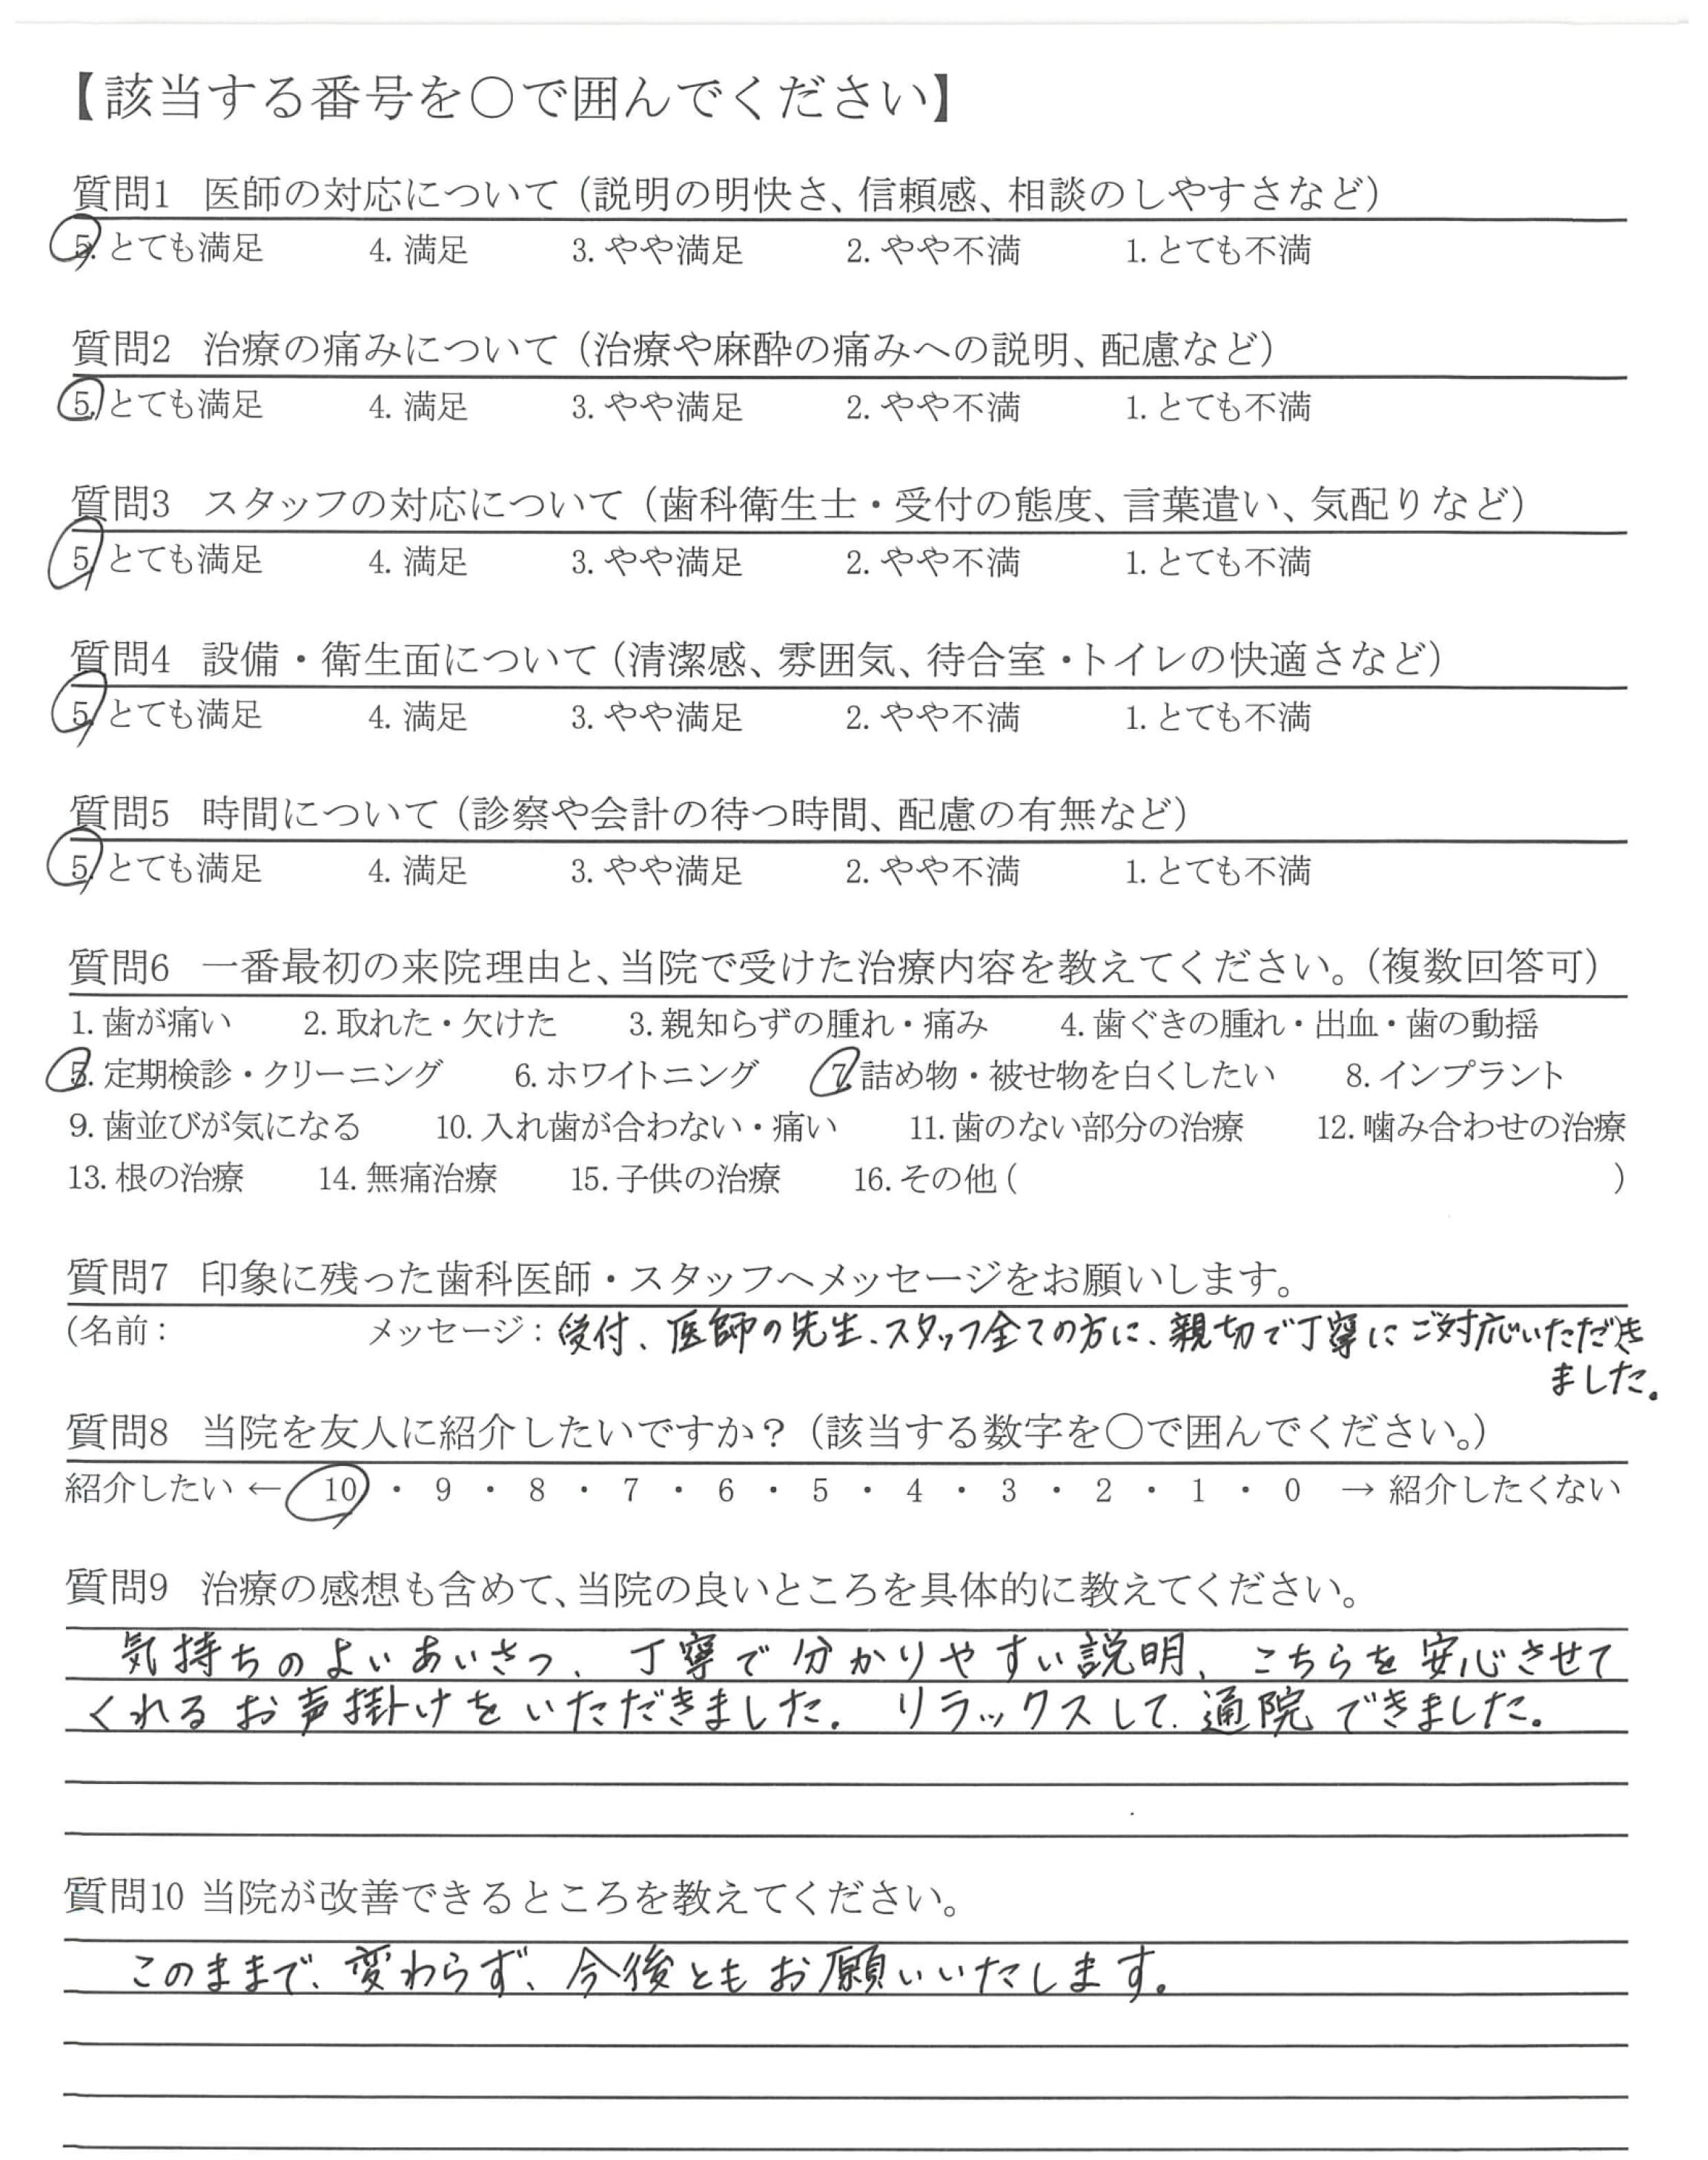 【該当する番号を〇で囲んでください】
質問1 医師の対応について（説明の明快さ、信頼感、相談のしやすさなど）
5. とても満足 4. 満足 3. やや満足 2. やや不満 1. とても不満
質問2 治療の痛みについて（治療や麻酔の痛みへの説明、配慮など）
5. とても満足 4. 満足 3. やや満足 2. やや不満 1. とても不満
質問3 スタッフの対応について（歯科衛生士・受付の態度、言葉遣い、気配りなど）
5. とても満足 4. 満足 3. やや満足 2. やや不満 1. とても不満
質問4 設備・衛生面について（清潔感、雰囲気、待合室・トイレの快適さなど）
5. とても満足 4. 満足 3. やや満足 2. やや不満 1. とても不満
質問5 時間について（診察や会計の待つ時間、配慮の有無など）
5. とても満足 4. 満足 3. やや満足 2. やや不満 1. とても不満
質問6 一番最初の来院理由と、当院で受けた治療内容を教えてください。（複数回答可）
1. 歯が痛い 2. 取れた・欠けた 3. 親知らずの腫れ・痛み 4. 歯ぐきの腫れ・出血・歯の動揺
5. 定期検診・クリーニング 6. ホワイトニング 7. 詰め物・被せ物を白くしたい 8. インプラント
9. 歯並びが気になる 10. 入れ歯が合わない・痛い 11. 歯のない部分の治療 12. 噛み合わせの治療
13. 根の治療 14. 無痛治療 15. 子供の治療 16. その他 ( )
質問7 印象に残った歯科医師・スタッフへメッセージをお願いします。
（名前： メッセージ：受付、医師の先生、スタッフ全ての方に、親切で丁寧にご対応いただき
ました。
質問8 当院を友人に紹介したいですか？（該当する数字を〇で囲んでください。）
紹介したい ← 10 ・ 9 ・ 8 ・ 7 ・ 6 ・ 5 ・ 4 ・ 3 ・ 2 ・ 1 ・ 0 → 紹介したくない
質問9 治療の感想も含めて、当院の良いところを具体的に教えてください。
気持ちのよいあいさつ、丁寧で分かりやすい説明、こちらを安心させて
くれるお声掛けをいただきました。リラックスして、通院できました。
質問10 当院が改善できるところを教えてください。
このままで、変わらず、今後ともお願いいたします。